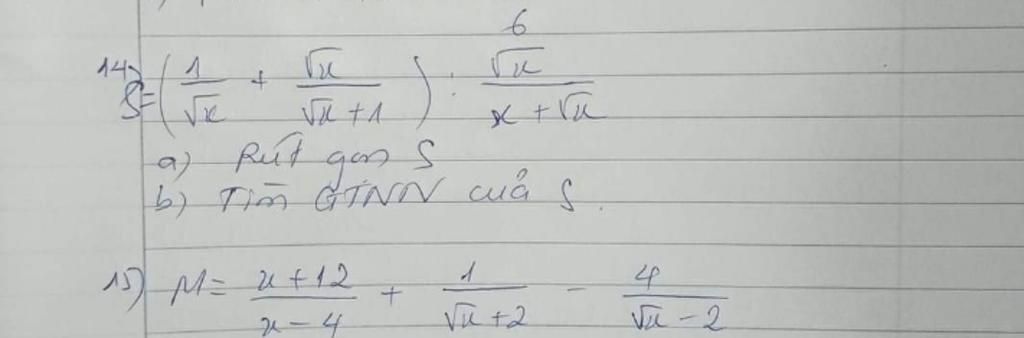 6
14) S = ( 1/√x + √x/(√x + 1) ) : √x/(x + √x)
a) Rút gọn S
b) Tìm GTNN của S.
15) M = (x + 12)/(x - 4) + 1/(√x + 2) - 4/(√x - 2)